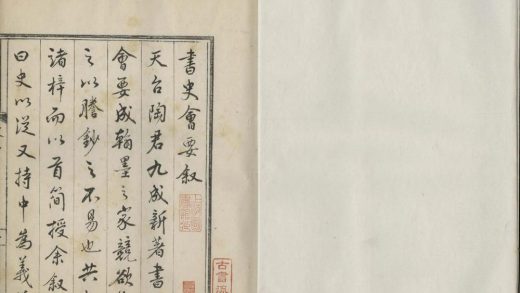 書史會要叙
天台陶君九成新著書
會要成翰墨之家競欲
之以謄鈔之不易也共
諸梓而以首簡授余叙
曰史以從又持中為義
古書流